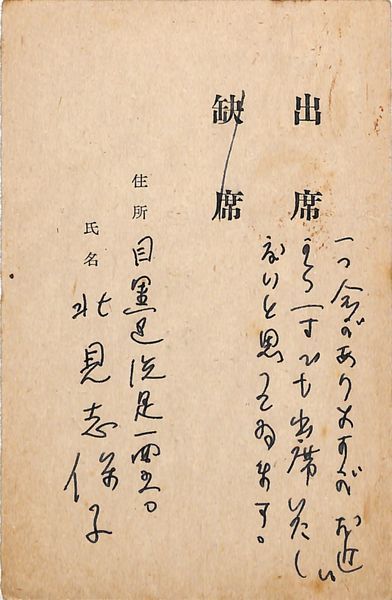 出席
一つ会がありますがお近い
から一寸でも出席いたし
たいと思つてゐます。
缺席
住所 目黒区洗足一四五〇
氏名 北見志保子